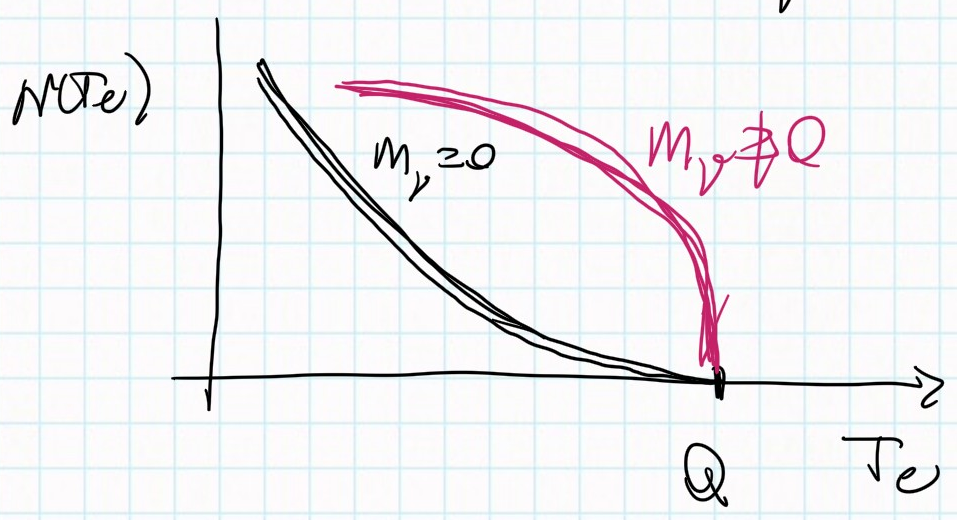 N(Te)
mν=0
mν≠0
Q
Te